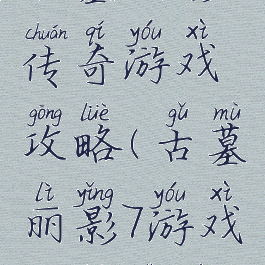 chuán qí yóu xì
传奇游戏
gōng lüè gǔ mù
攻略(古墓
lì yǐng yóu xì
丽影7游戏